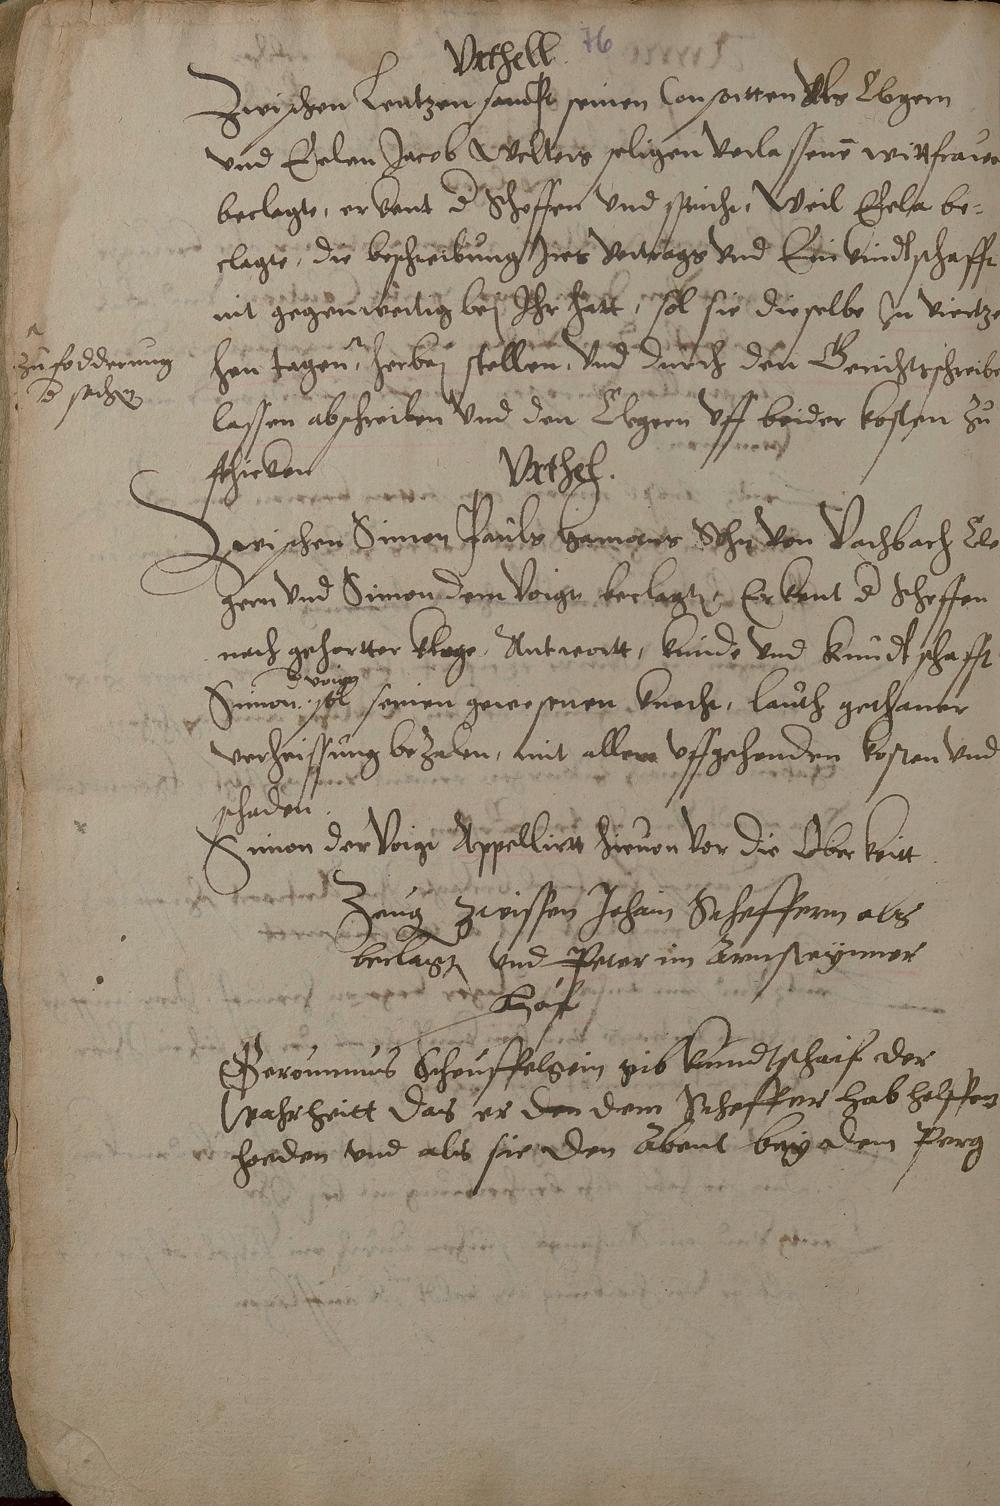 76
Urthell
Zwischen Contzen sampt seinen Consortten Als Clegern
und Eelen Jacob Welters seligen verlassene wittfrawe
beclagte, erkent d Scheffen und spricht, Weil Eela be-
clagte, die beschreibung Ires Vertrags und Ein kindtschafft
nit gegenwertig bei Ihr hatt, sol sie dieselbe In viertze
hen tagen, herbei stellen, und durch den Gerichtsschreibe
zu fodderung
d sachen
lassen abschreiben und den Clegern uff beider kosten zu
schicken
Urthel.
Zwischen Simon Pauls Sohn von Vachbach Cle
gern und Simon dem Voigt beclagten, Erkent d Scheffen
nach gehortter klage, Antwortt, kunde und kundtschafft
d voigt
Simon sol seinen gewesenen knecht, lauth gethaner
verheissung bezalen, mit allen uffgehenden kosten und
schaden.
Simon der Voigt Appellirtt hieuon vor die Oberkeitt.
Zeug zwissen Johain Scheffern als
beclagten und Peter im Arnsteynner
Hoff
Geronimus Scheuffelgein gib kundtschaif der
wahrheitt das er den dem Scheffer hab helffen
hoeden und als sie den Abent bey dem Perg